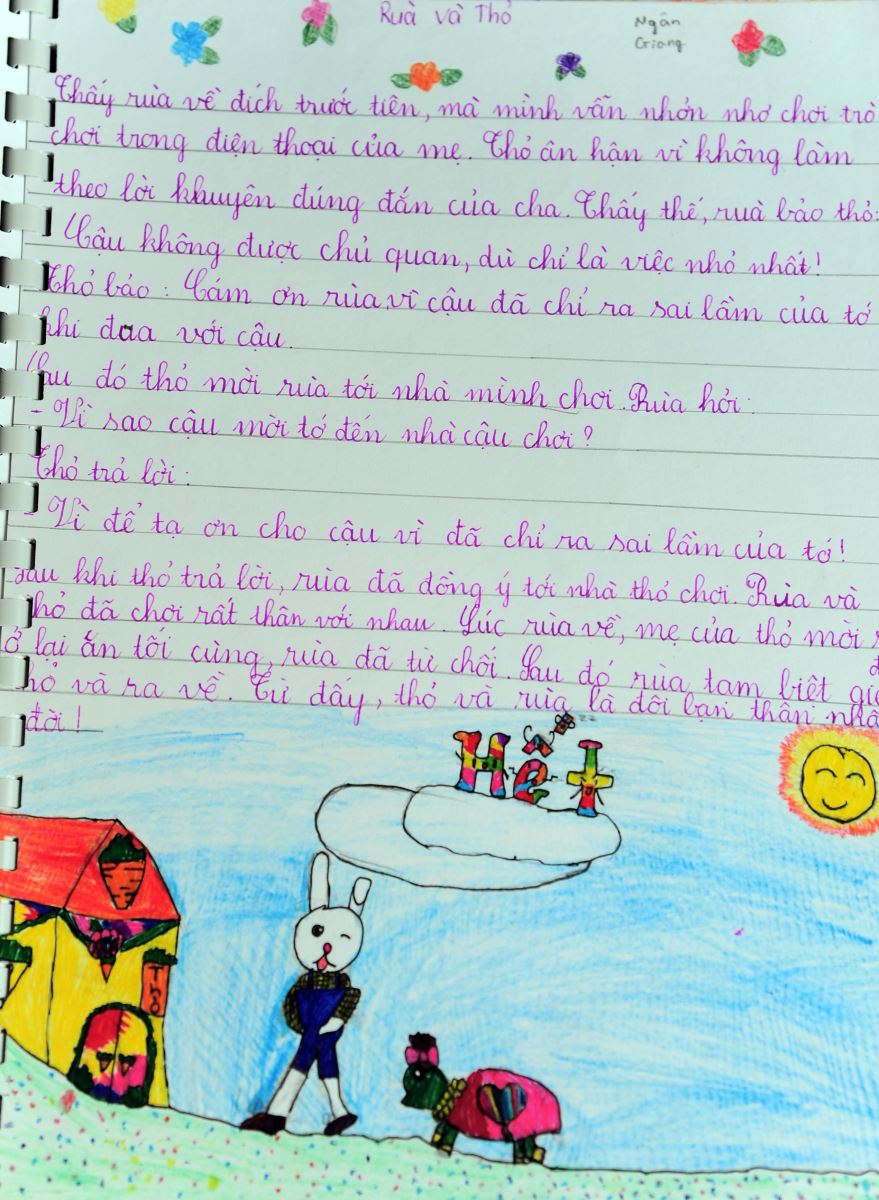 Ruà và Thỏ
Ngân
Giang
Thấy rùa về đích trước tiên, mà mình vẫn nhởn nhơ chơi trò
chơi trong điện thoại của mẹ. Thỏ ân hận vì không làm
theo lời khuyên đúng đắn của cha. Thấy thế, ruà bảo thỏ:
Cậu không được chủ quan, dù chỉ là việc nhỏ nhất!
Thỏ bảo: Cám ơn rùa vì cậu đã chỉ ra sai lầm của tớ
khi đua với cậu.
Sau đó thỏ mời rùa tới nhà mình chơi. Rùa hỏi:
- Vì sao cậu mời tớ đến nhà cậu chơi?
Thỏ trả lời:
- Vì để tạ ơn cho cậu vì đã chỉ ra sai lầm của tớ!
Sau khi thỏ trả lời, rùa đã đồng ý tới nhà thỏ chơi. Rùa và
thỏ đã chơi rất thân với nhau. Lúc rùa về, mẹ của thỏ mời
ở lại ăn tối cùng, rùa đã từ chối. Sau đó rùa tạm biệt
thỏ và ra về. Từ đấy, thỏ và rùa là đôi bạn thân
đời!
Hết
Thỏ